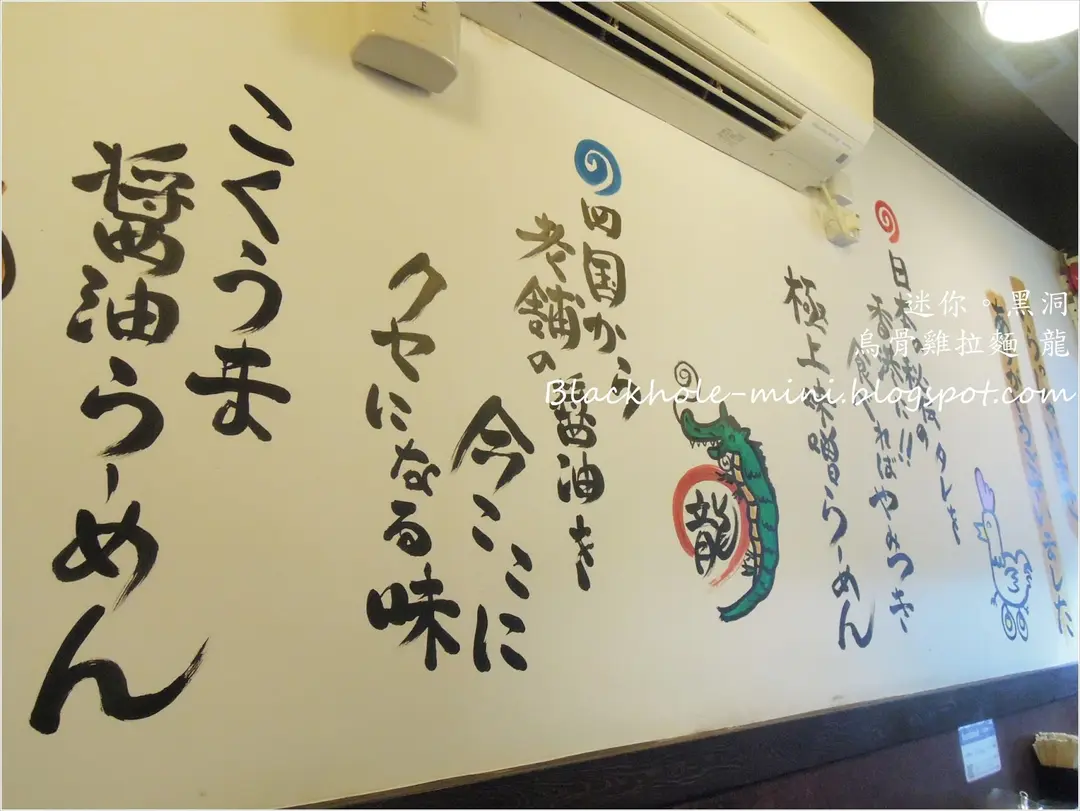 四国から
老舗の醤油を
今ここに
クセになる味
こくうま
醤油らーめん
龍
香港に!!
食くればやみつき
極上味噌らーめん
迷你。黑洞
烏骨雞拉麵 龍
Blackhole-mini.blogspot.com